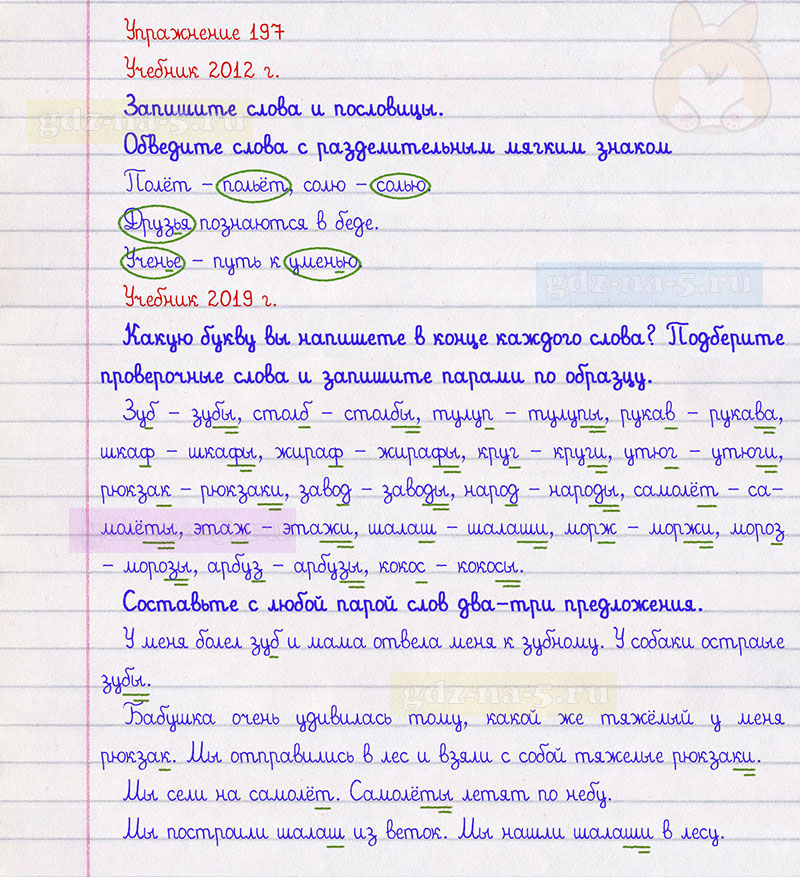 Упражнение 197
Учебник 2012 г.
Запишите слова и пословицы.
gdz-na-5.ru
Обведите слова с разделительным мягким знаком
Полёт – польёт, солю – солью.
Друзья познаются в беде.
Ученье – путь к уменью.
gdz-na-5.ru
Учебник 2019 г.
Какую букву вы напишете в конце каждого слова? Подберите
проверочные слова и запишите парами по образцу.
Зуб – зубы, столб – столбы, тулуп – тулупы, рукав – рукава,
шкаф – шкафы, жираф – жирафы, круг – круги, утюг – утюги,
рюкзак – рюкзаки, завод – заводы, народ – народы, самолёт – са-
молёты, этаж – этажи, шалаш – шалаши, морж – моржи, мороз
– морозы, арбуз – арбузы, кокос – кокосы.
Составьте с любой парой слов два-три предложения.
У меня болел зуб и мама отвела меня к зубному. У собаки остраые
зубы.
gdz-na-5.ru
Бабушка очень удивилась тому, какой же тяжёлый у меня
рюкзак. Мы отправились в лес и взяли с собой тяжелые рюкзаки.
Мы сели на самолёт. Самолёты летят по небу.
Мы построили шалаш из веток. Мы нашли шалаши в лесу.